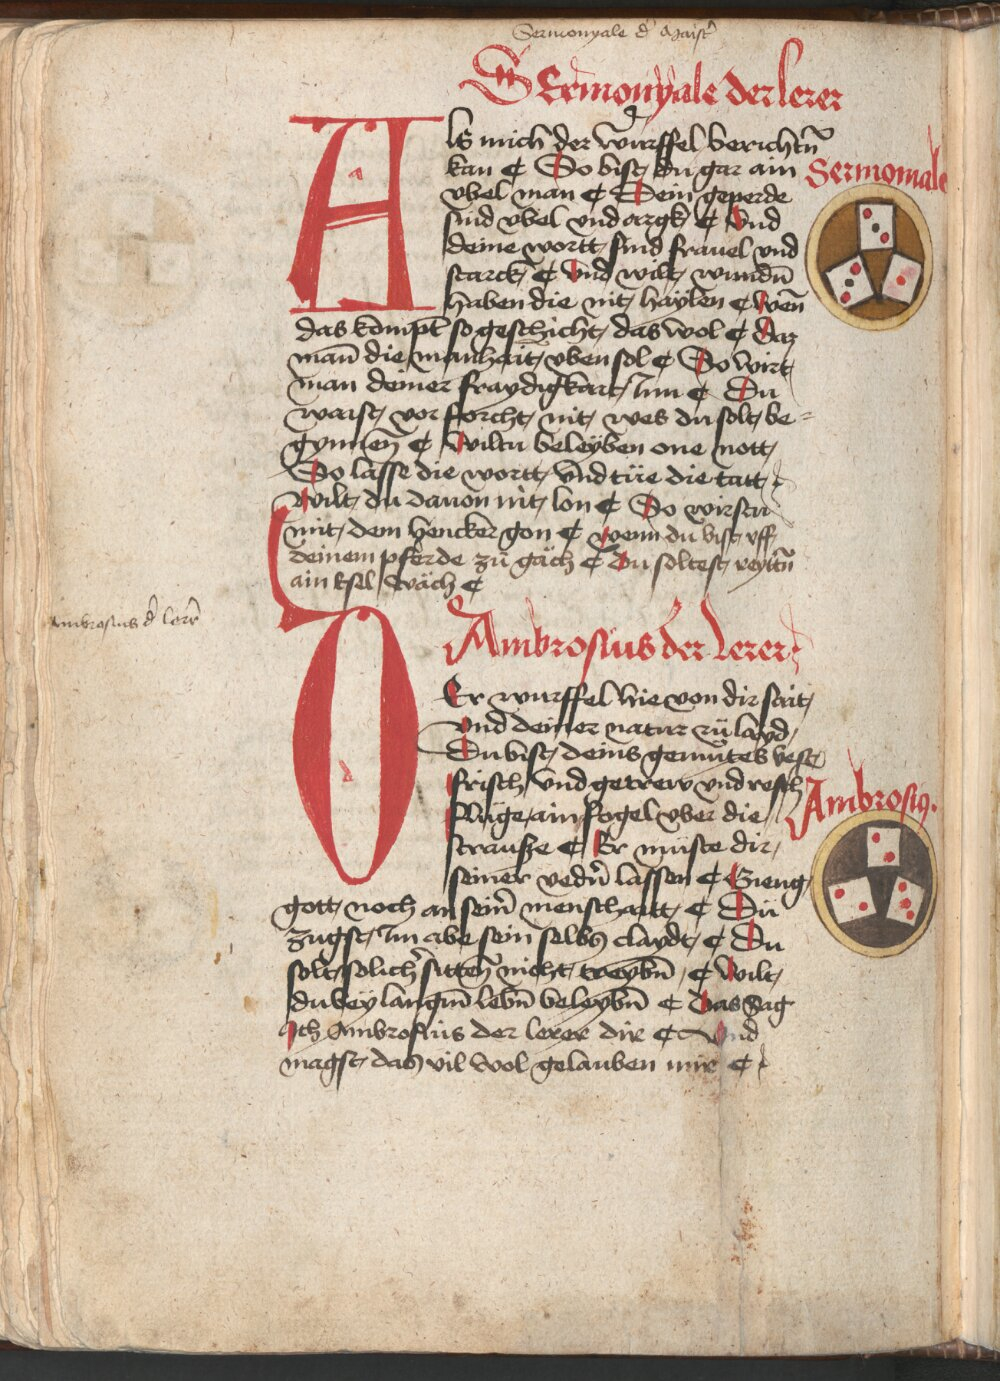 Sermonyale d' Maist'
Sermonyale der lerer
Als mich der wurffel berichtñ
kan ¢ So bist du gar ain
vbel man ¢ Dein geperde
sind vbel vnd argk ¢ Vnd
deine wortt sind frauel vnd
starck ¢ Vnd wilt wundñ
haben die nit haylen ¢ Wen̄
das kompt so geschicht das wol ¢ Daz
man̄ die manhait vben sol ¢ So wirt
man deiner fraydigkait Inn ¢ Du
waist vor forcht nit wes du solt be=
gynnen ¢ Wiltu beleyben one nott
So lasse die wortt vnd tüe die tatt
Wilt du dauon nit lon ¢ So wirstu
mit dem hencker gon ¢ Wenn du bist vff
deinem pferde zü gäch ¢ Du soltest reyttñ
ain Esel wäch ¢
Sermoniale
Ambrosius d' lerer
Ambrosius der Lerer
Der wurffel hie von dir seit
Vnd deiner natur zü layd
Du bist deins gemütes vest
frisch vnd getrew vnd resch
Flüge ain fogel vber die
strausze ¢ Er müste dir
seiner vedr̄n lassen ¢ Gieng
gott noch an sein̄ menschaitt ¢ Dü
zugst Im abe sein selbs claydt ¢ Du
solt solich' sitten nicht treybñ ¢ Wilt
du bey langm̄ lebñ beleybñ ¢ Das sag
Ich Ambrosius der lerer dir ¢ Vnd
magst das vil wol gelauben mir ¢
Ambrosiꝰ.